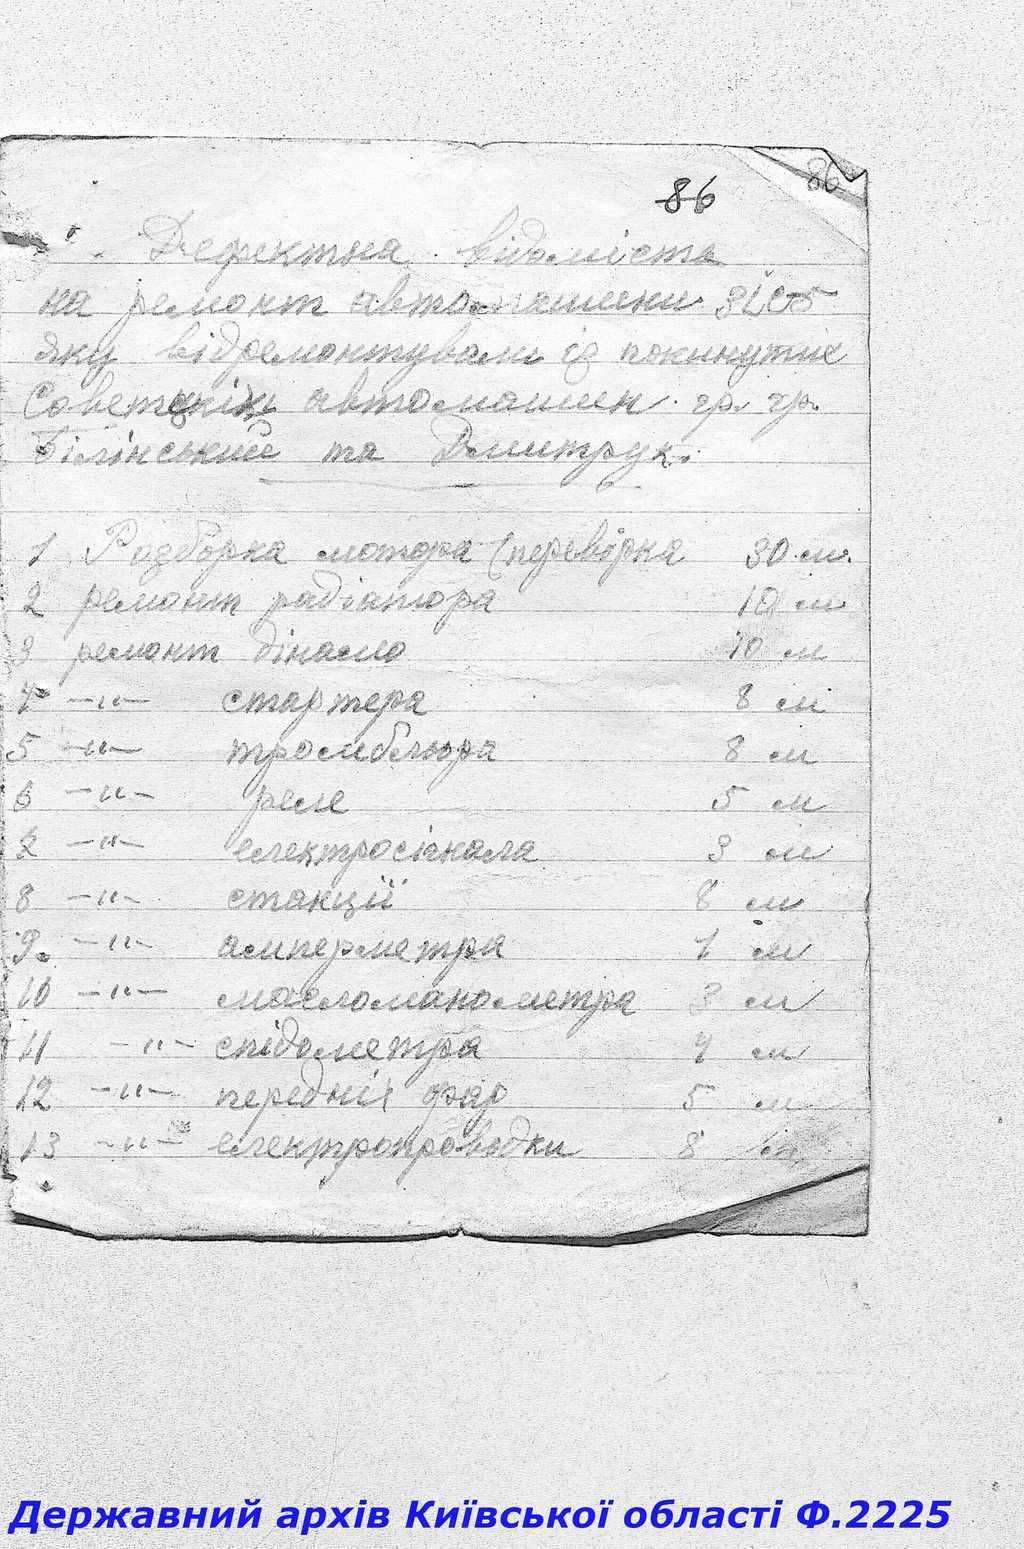 86
86
Дефектна відомість
на ремонт автомашини ЗіС-5
яку відремонтували із покинутих
Советских автомашин гр. гр.
Білінський та Дмитрук.
1 Розборка мотора (перевірка 30 м.
2 ремонт радіатора 10 м
3 ремонт дінамо 10 м
4 —"— стартера 8 м
5 —"— тромблюра 8 м
6 —"— реле 5 м
7 —"— електросігнала 3 м
8 —"— стакції 8 м
9. —"— амперметра 1 м
10 —"— масломанометра 3 м
11 —"— спідометра 4 м
12 —"— передніх фар 5 м
13 —"— електропроводки 8 м
Державний архів Київської області Ф.2225